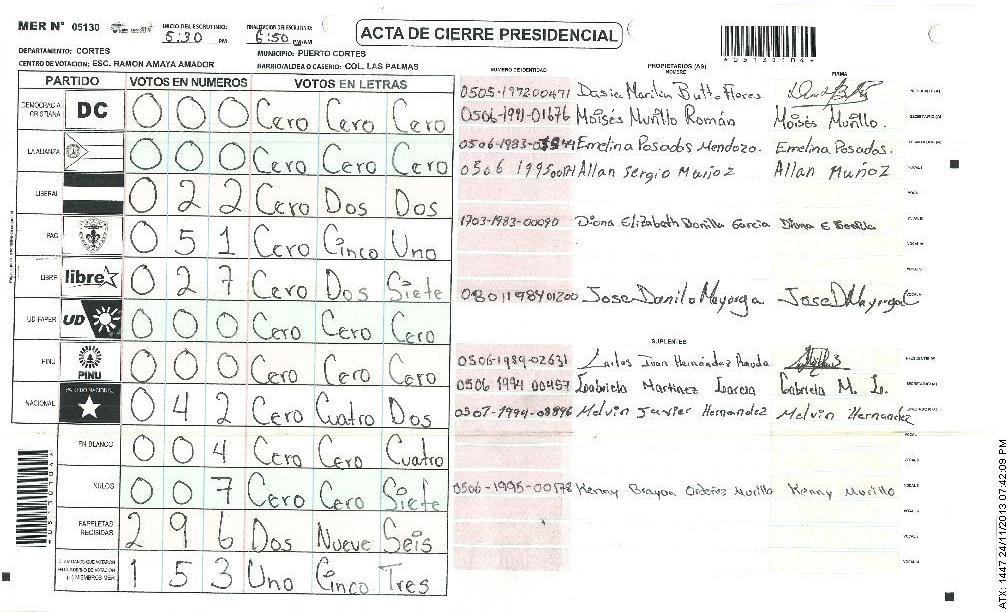 MER N° 05130
INICIO DEL ESCRUTINIO: 5:30 PM
FINALIZACION DEL ESCRUTINIO: 6:50 PM/AM
ACTA DE CIERRE PRESIDENCIAL
DEPARTAMENTO: CORTES
MUNICIPIO: PUERTO CORTES
CENTRO DE VOTACION: ESC. RAMON AMAYA AMADOR
BARRIO/ALDEA O CASERIO: COL. LAS PALMAS
PARTIDO VOTOS EN NUMEROS VOTOS EN LETRAS
DEMOCRACIA CRISTIANA DC 0 0 0 Cero Cero Cero
LA ALIANZA 0 0 0 Cero Cero Cero
LIBERAL 0 2 2 Cero Dos Dos
PAC 0 5 1 Cero Cinco Uno
LIBRE libre 0 2 7 Cero Dos Siete
UD/FAPER UD 0 0 0 Cero Cero Cero
PINU PINU 0 0 0 Cero Cero Cero
NACIONAL PARTIDO NACIONAL 0 4 2 Cero Cuatro Dos
EN BLANCO 0 0 4 Cero Cero Cuatro
NULOS 0 0 7 Cero Cero Siete
PAPELETAS RECIBIDAS 2 9 6 Dos Nueve Seis
CIUDADANOS QUE VOTARON 1 5 3 Uno Cinco Tres
NUMERO DE IDENTIDAD PROPIETARIOS (AS) NOMBRE FIRMA
0505-197200471
0506-1991-01676 Moisés Murillo Román Moisés Murillo.
0506-1983- Emelina Posados Mendoza. Emelina Posados.
0506 1995 Allan Sergio Muñoz Allan Muñoz
1703-1983-00090 Diana Elizabeth Bonilla Garcia Diana E Bonilla
0801198401200 Jose Danilo Mayorga Jose D Mayorga
SUPLENTES
0506-1989-02631 Carlos Ivan Hernández
0506 1994 00457 Gabriela Martinez Garcia Gabriela M. G.
0507-1994- Melvin Javier Hernandez Melvin Hernandez
0506-1995-00178 Kenny Brayan Ordoñez Murillo Kenny Murillo
ATX: 1447 24/11/2013 07:42:09 PM